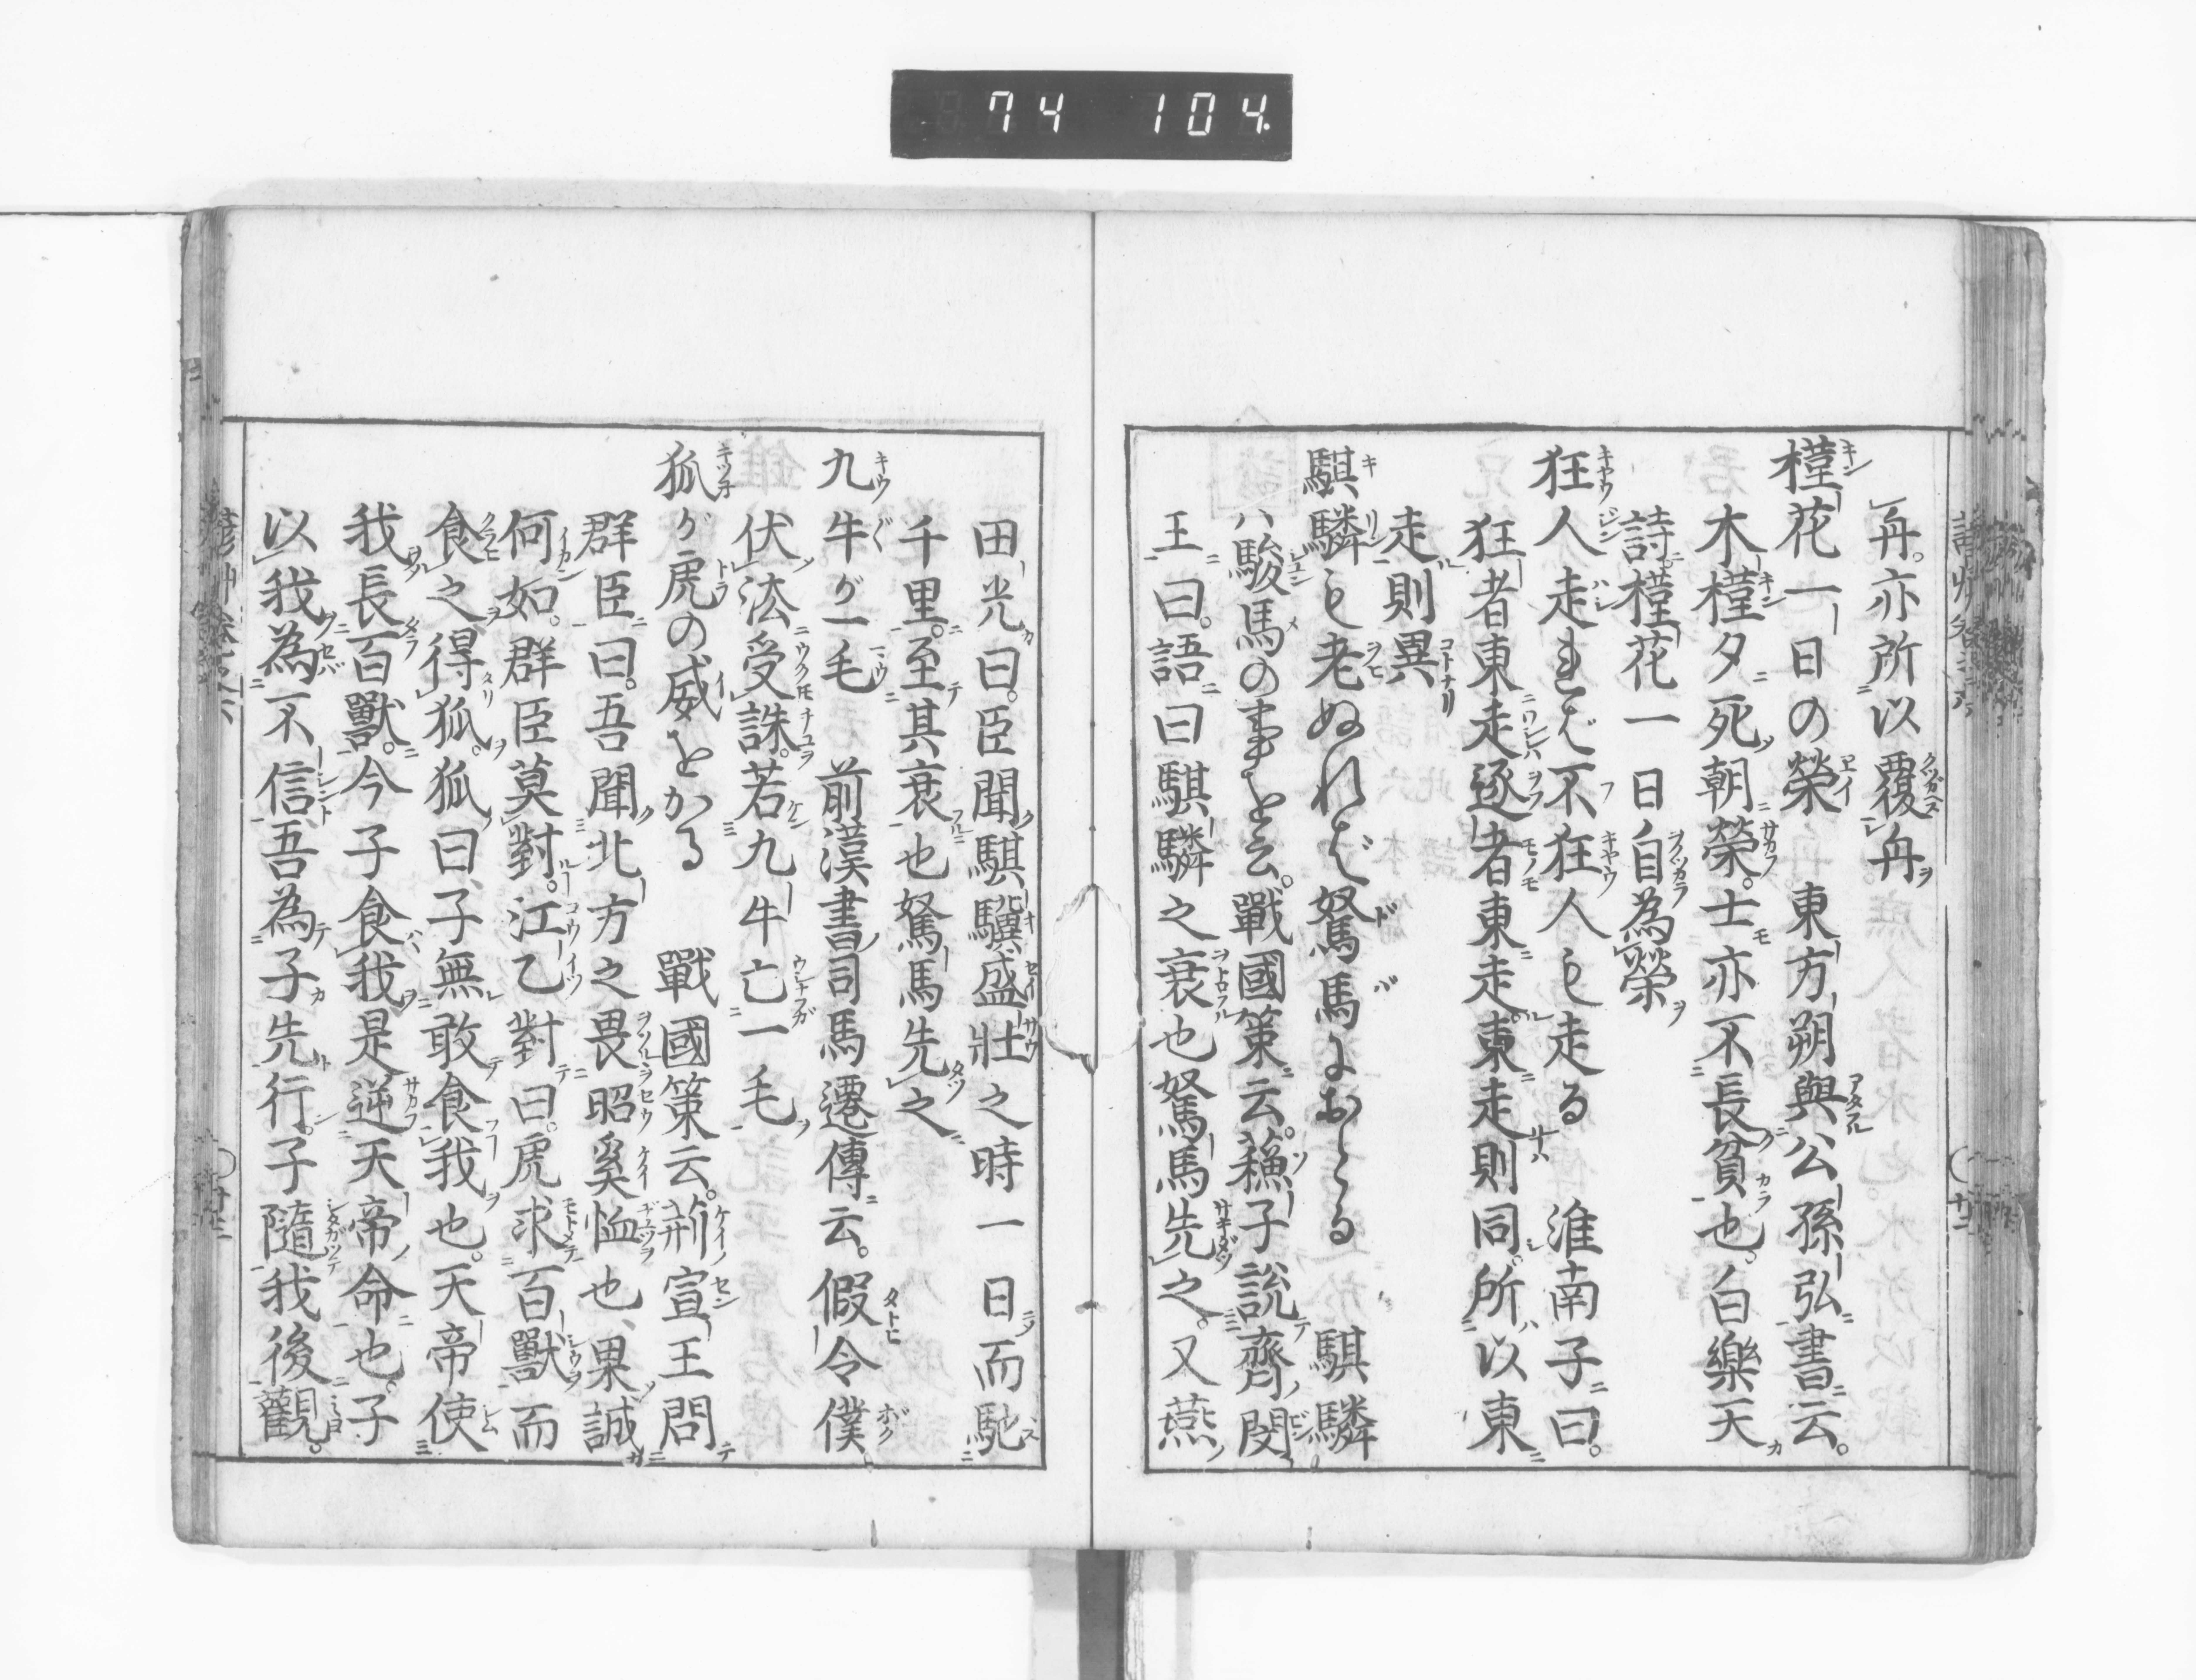 74 104
舟。亦所以覆舟
槿花一日の榮 東方朔與公孫弘書云。
木槿夕死朝榮。士亦不長貧也。白樂天
詩槿花一日自為榮
狂人走れば不狂人も走る 淮南子曰。
狂者東走逐者東走。東走則同。所以東
走則異
騏驎も老ぬれば駑馬におとる 騏驎
ハ駿馬の事を云。戰國策云。蘓子說齊閔
王曰。語曰騏驎之衰也駑馬先之。又燕
田光曰。臣聞騏驥盛壯之時一日而馳
千里。至其衰也駑馬先之
九牛が一毛 前漢書司馬遷傳云。假令僕
伏法受誅。若九牛亡一毛
狐が虎の威をかる 戰國策云。荊宣王問
群臣曰。吾聞北方之畏昭奚恤也、果誠
何如。群臣莫對。江乙對曰。虎求百獸而
食之得狐。狐曰、子無敢食我也。天帝使
我長百獸。今子食我是逆天帝命也。子
以我為不信吾為子先行。子隨我後觀。